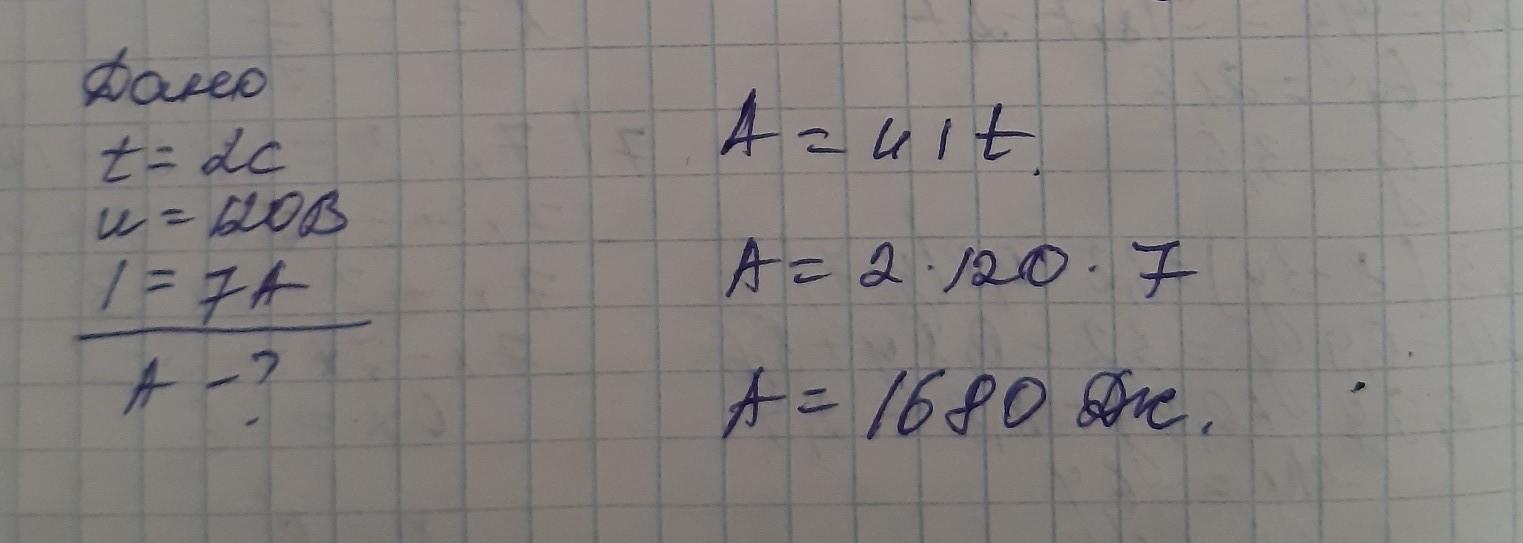 Дано
t = 2с
u = 120В
I = 7А
А - ?
A = u I t.
A = 2 · 120 · 7
A = 1680 Дж.